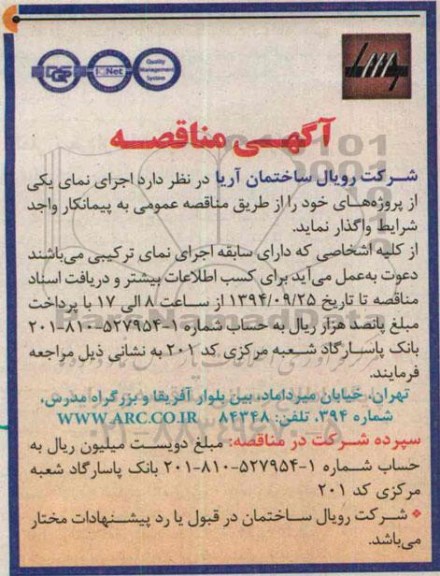 DQS
IQNet
Quality
Management
System
آگهی مناقصه
شرکت رویال ساختمان آریا در نظر دارد اجرای نمای یکی
از پروژه‌های خود را از طریق مناقصه عمومی به پیمانکار واجد
شرایط واگذار نماید.
از کلیه اشخاصی که دارای سابقه اجرای نمای ترکیبی می‌باشند
دعوت به‌عمل می‌آید برای کسب اطلاعات بیشتر و دریافت اسناد
مناقصه تا تاریخ ۱۳۹۴/۰۹/۲۵ از ساعت ۸ الی ۱۷ با پرداخت
مبلغ پانصد هزار ریال به حساب شماره ۱-۵۲۷۹۵۴-۸۱۰-۲۰۱
بانک پاسارگاد شعبه مرکزی کد ۲۰۱ به نشانی ذیل مراجعه
فرمایند.
تهران، خیابان میرداماد، بین بلوار آفریقا و بزرگراه مدرس،
شماره ۳۹۴. تلفن: ۸۴۳۴۸ WWW.ARC.CO.IR
سپرده شرکت در مناقصه: مبلغ دویست میلیون ریال به
حساب شماره ۱-۵۲۷۹۵۴-۸۱۰-۲۰۱ بانک پاسارگاد شعبه
مرکزی کد ۲۰۱
* شرکت رویال ساختمان در قبول یا رد پیشنهادات مختار
می‌باشد.
ParsNamadData